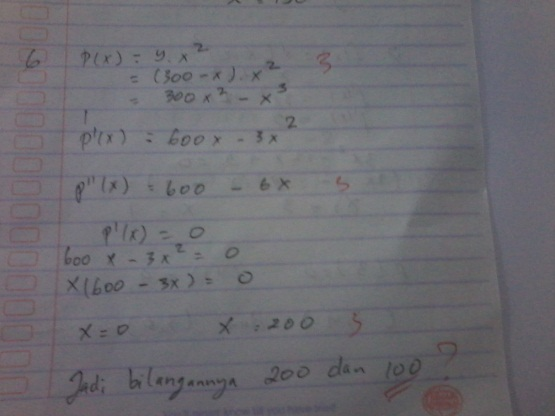 6 P(x) = y. x² 3
= (300 - x) . x²
= 300 x² - x³
p'(x) = 600x - 3x²
p''(x) = 600 - 6x 3
p'(x) = 0
600 x - 3x² = 0
x(600 - 3x) = 0
x = 0 x = 200 3
Jadi bilangannya 200 dan 100 ?